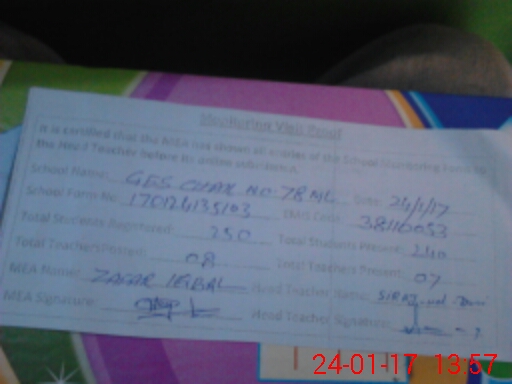 Monitoring Visit Proof
It is certified that the MEA has shown all entries of the School Monitoring Form to
the Head Teacher before its online submission.
School Name: GES CHAK NO 78 NB Date: 24/1/17
School Form No: 170124135103 EMIS Code: 38110053
Total Students Registered: 250 Total Students Present: 240
Total Teachers Posted: 08 Total Teachers Present: 07
MEA Name: ZAFAR IQBAL Head Teacher Name: SIRAJ
MEA Signature: Head Teacher Signature:
24-01-17 13:57